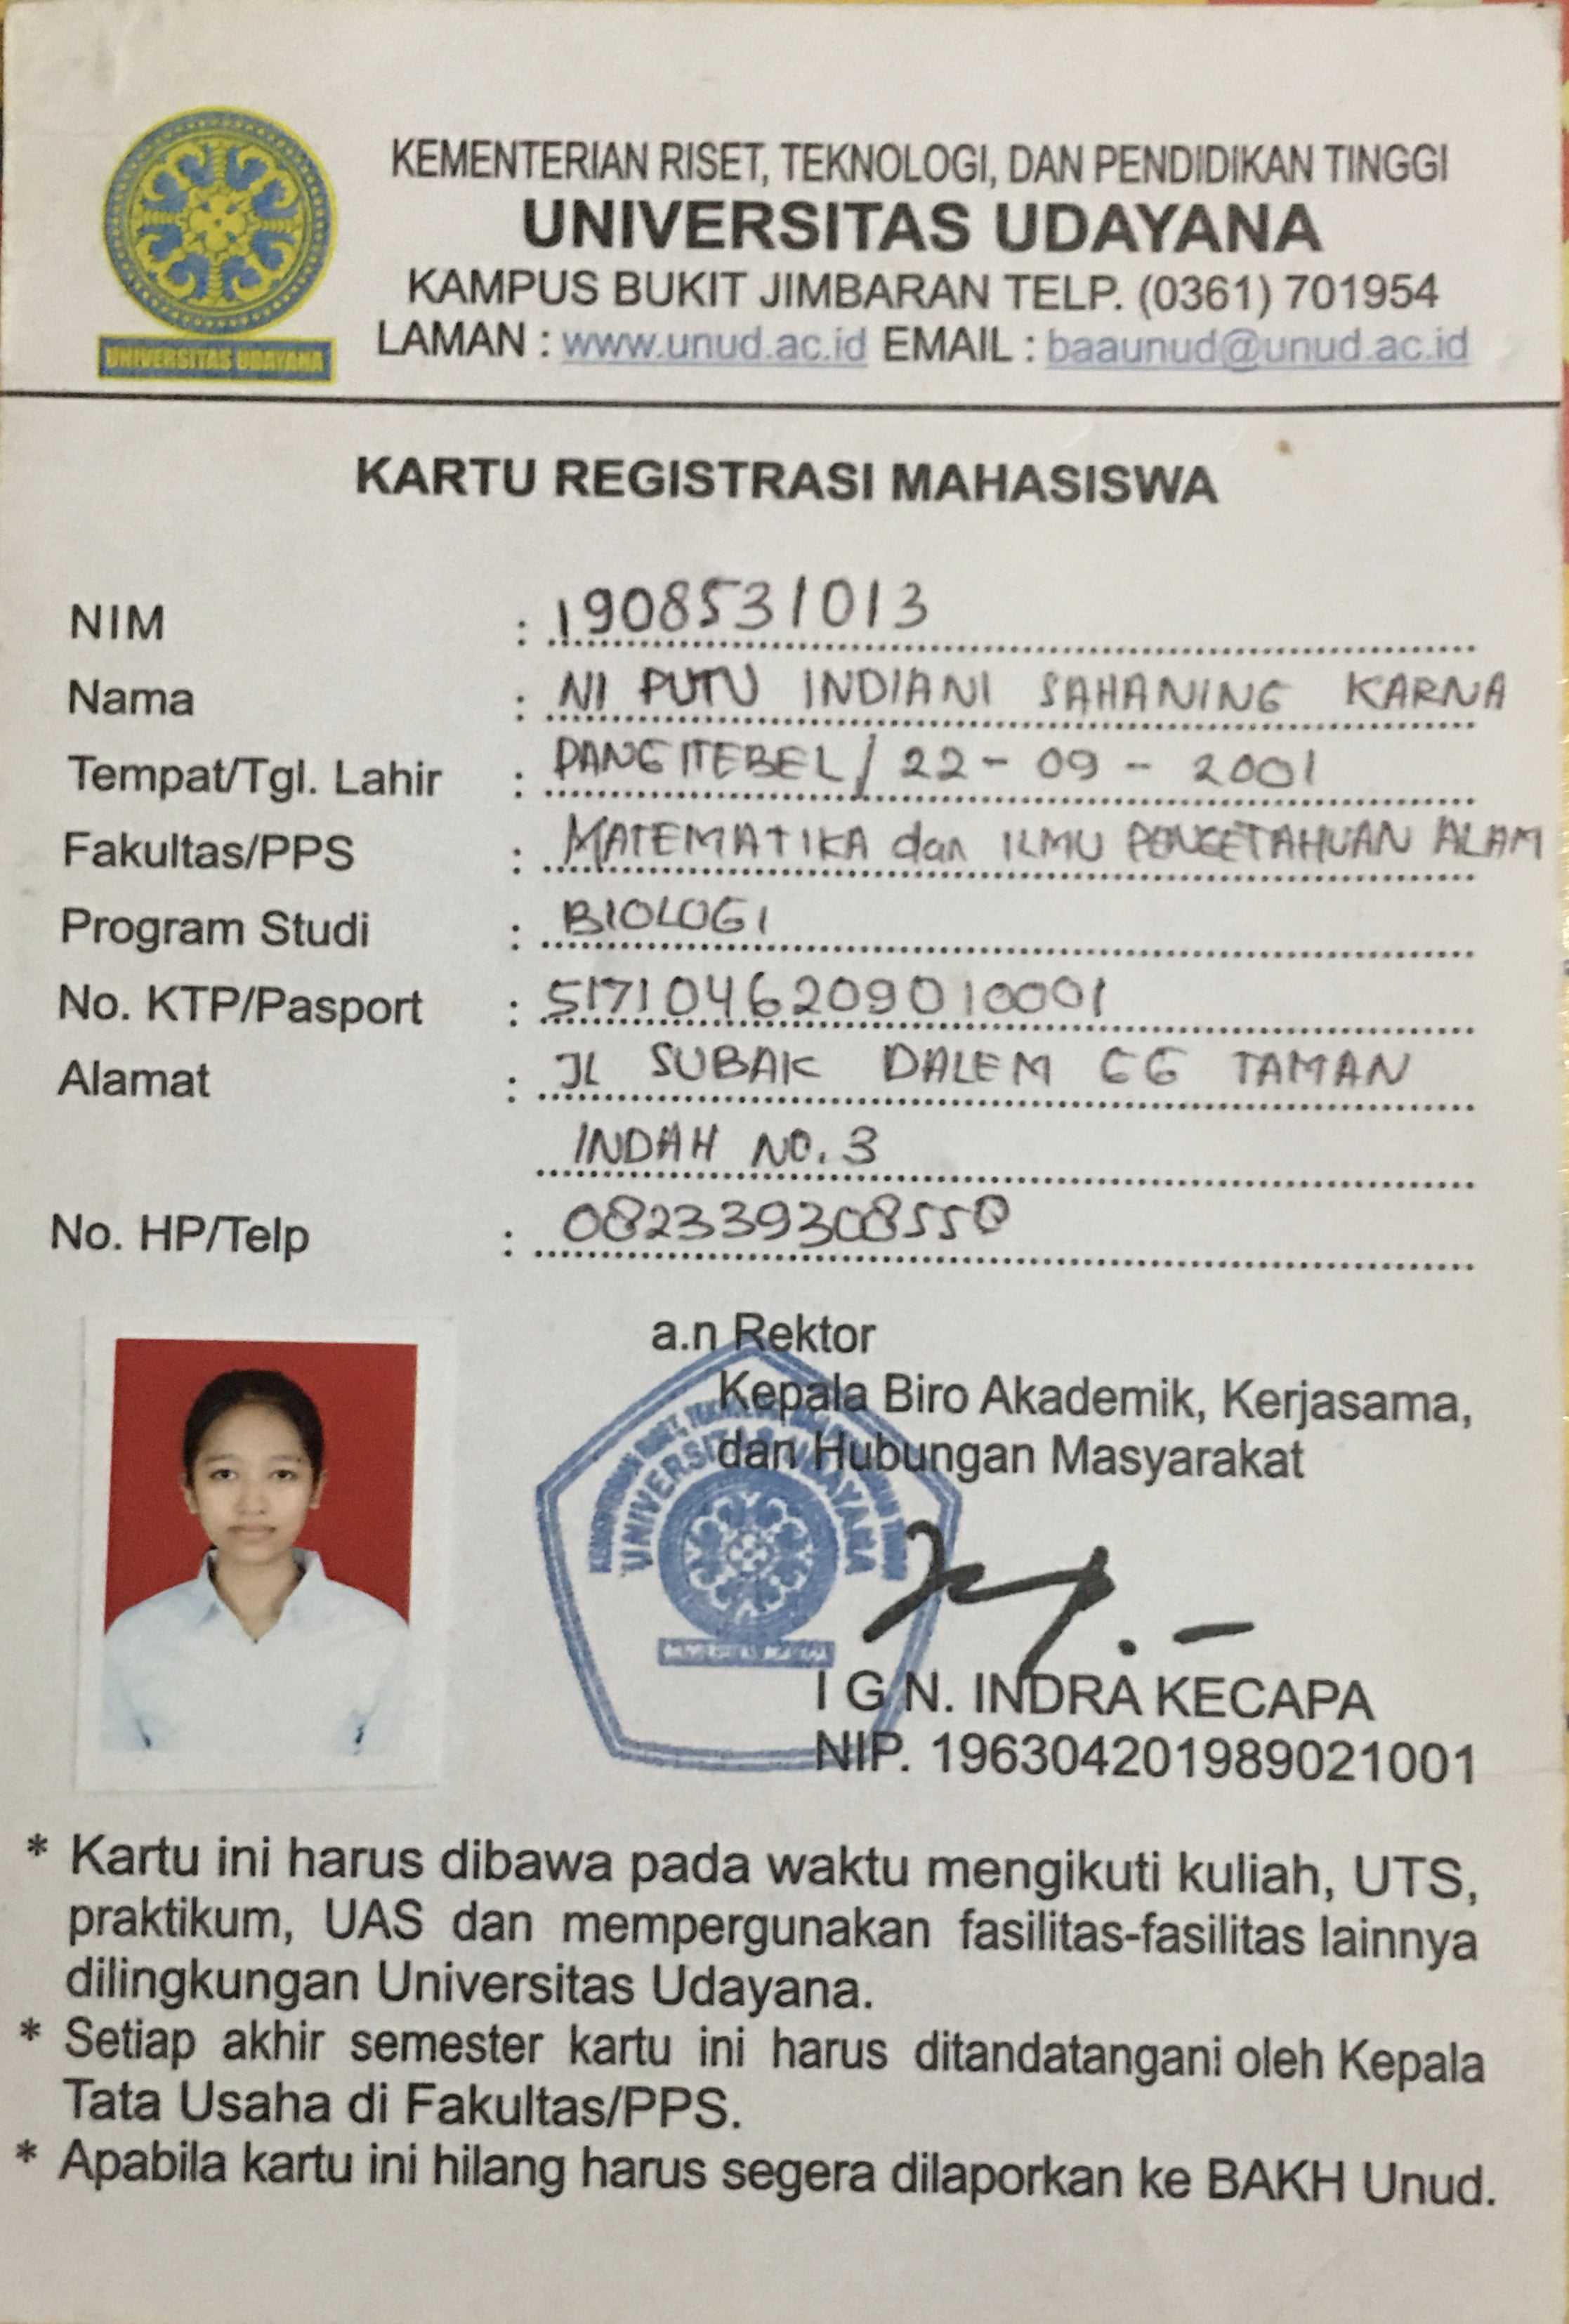 KEMENTERIAN RISET, TEKNOLOGI, DAN PENDIDIKAN TINGGI
UNIVERSITAS UDAYANA
KAMPUS BUKIT JIMBARAN TELP. (0361) 701954
LAMAN : www.unud.ac.id EMAIL : baaunud@unud.ac.id
UNIVERSITAS UDAYANA
KARTU REGISTRASI MAHASISWA
NIM : 1908531013
Nama : NI PUTU INDIANI SAHANING KARNA
Tempat/Tgl. Lahir : PANGITEBEL / 22 - 09 - 2001
Fakultas/PPS : MATEMATIKA dan ILMU PENGETAHUAN ALAM
Program Studi : BIOLOGI
No. KTP/Pasport : 5171046209010001
Alamat : JL SUBAK DALEM GG TAMAN
INDAH NO. 3
No. HP/Telp : 082339308550
a.n Rektor
Kepala Biro Akademik, Kerjasama,
dan Hubungan Masyarakat
UNIVERSITAS UDAYANA
I G N. INDRA KECAPA
NIP. 196304201989021001
* Kartu ini harus dibawa pada waktu mengikuti kuliah, UTS,
praktikum, UAS dan mempergunakan fasilitas-fasilitas lainnya
dilingkungan Universitas Udayana.
* Setiap akhir semester kartu ini harus ditandatangani oleh Kepala
Tata Usaha di Fakultas/PPS.
* Apabila kartu ini hilang harus segera dilaporkan ke BAKH Unud.